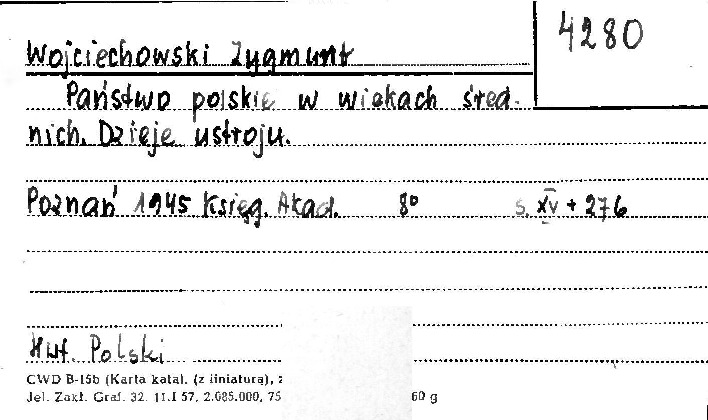 4280
Wojciechowski Zygmunt
Państwo polskie w wiekach śred-
nich. Dzieje ustroju.
Poznań 1945 Księg. Akad. 8° s. XV + 276
Hist. Polski
CWD B-15b (Karta katal. (z liniaturą), z
Jel. Zakł. Graf. 32. 11.I 57. 2.085.000, 75 60 g